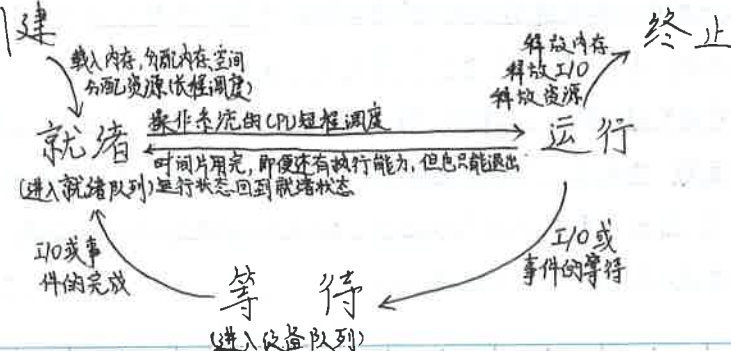 建
终止
载入内存,分配内存空间
分配资源(长程调度)
释放内存
释放I/O
释放资源
就绪
操作系统的CPU短程调度
运行
时间片用完,即便还有执行能力,但也只能退出
(进入就绪队列)
运行状态回到就绪状态
I/O或事
件的完成
I/O或
事件的等待
等待
(进入设备队列)